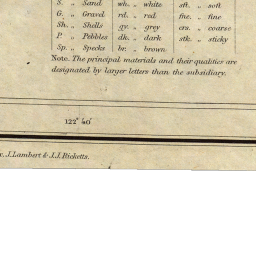 S. „ Sand wh. „ white sft. „ soft
G. „ Gravel rd. „ red fne. „ fine
Sh. „ Shells gy. „ grey crs. „ coarse
P. „ Pebbles dk. „ dark stk. „ sticky
Sp. „ Specks br. „ brown
Note. The principal materials and their qualities are
designated by larger letters than the subsidiary.
122° 40'
J. Lambert & J. J. Ricketts.